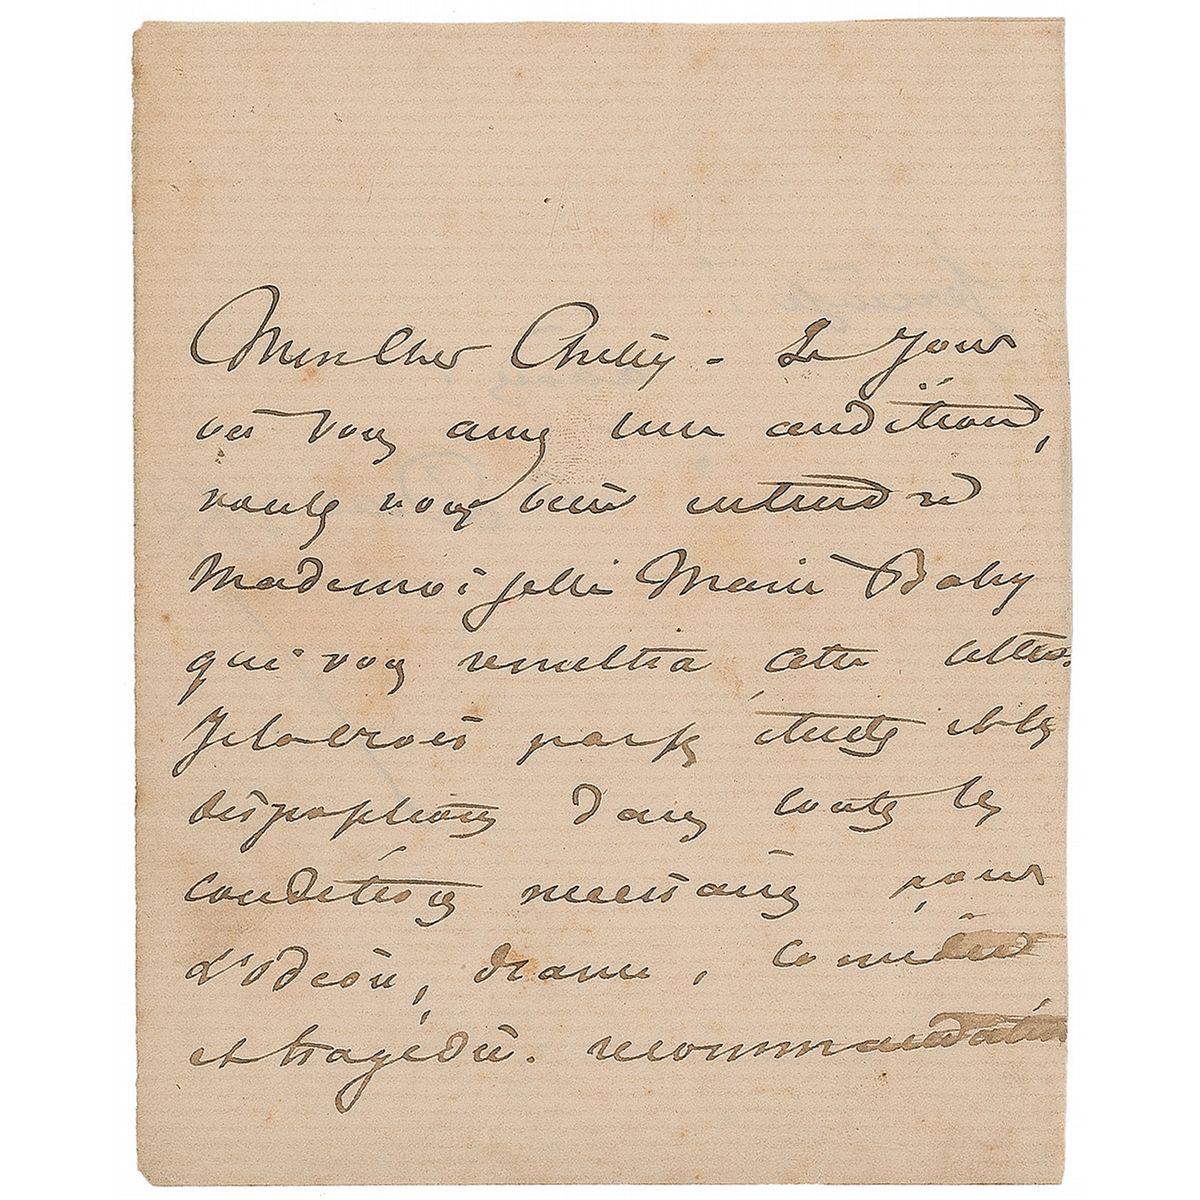 A D
Mon cher Chilly – Le jour
où vous aurez une audition,
voulez vous bien entendre
Mademoiselle Marie Baby
qui vous remettra cette lettre.
Je la crois par ses études et ses
dispositions dans toutes les
conditions nécessaires pour
l'Odéon, drame, comédie
et tragédie. recommandation